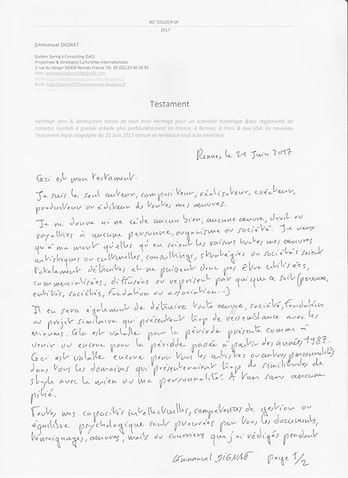 SG° GOLDEN SA
2017
Emmanuel DIGNAT
Golden Spring's Consulting (SAS)
Projectives & Stratégies Culturelles Internationales
3 rue du Verger 35000 Rennes France Tél. 33 (0)2 23 40 20 91
Testament
Héritage zéro & destruction totale de tout mon héritage pour un scandale historique &des règlements de
comptes mortels à grande échelle plus particulièrement en France, à Rennes, à Paris & aux USA. Ce nouveau
Testament légal olographe du 21 Juin 2017 annule et remplace tout acte antérieur.
Rennes, le 21 Juin 2017
Ceci est mon testament.
Je suis le seul auteur, compositeur, réalisateur, créateur,
producteur ou éditeur de toutes mes œuvres.
Je ne donne ni ne cède aucun bien, aucune œuvre, droit ou
royalties à aucune personne, organisme ou société. Je veux
qu'à ma mort quelles qu'en soient les raisons toutes mes œuvres
artistiques ou culturelles, consultings, stratégies ou sociétés soient
totalement détruites et ne puissent donc pas être utilisées,
commercialisées, diffusées ou reprises par quiconque soit (personne,
entités, sociétés, fondation ou association...)
Il en sera également de détruire toute œuvre, société, fondation
ou projet similaire qui présentent trop de ressemblance avec les
miennes. Cela est valable pour la période présente comme à
venir ou encore pour la période passée à partir des années 1987.
Ceci est valable encore pour tous les artistes ou autres personnalités
dans tous les domaines qui présenteraient trop de similitudes de
style avec le mien ou ma personnalité. A tuer sans aucune
pitié.
Toutes mes capacités intellectuelles, compétences de gestion ou
équilibre psychologique sont prouvées par tous les documents,
témoignages, œuvres, mails ou courriers que j'ai rédigés pendant
Emmanuel DIGNAT page 1/2